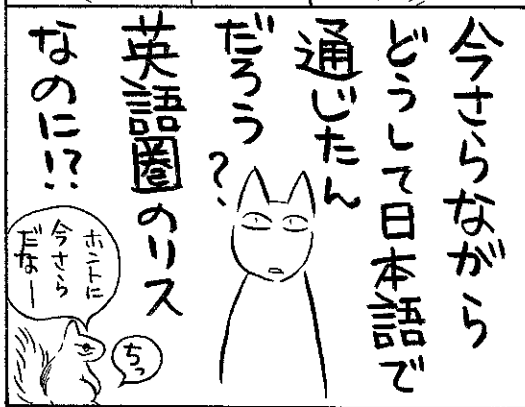 今さらながら
どうして日本語で
通じたん
だろう?
英語圏のリス
なのに!?
ホントに
今さら
だなー
ちっ